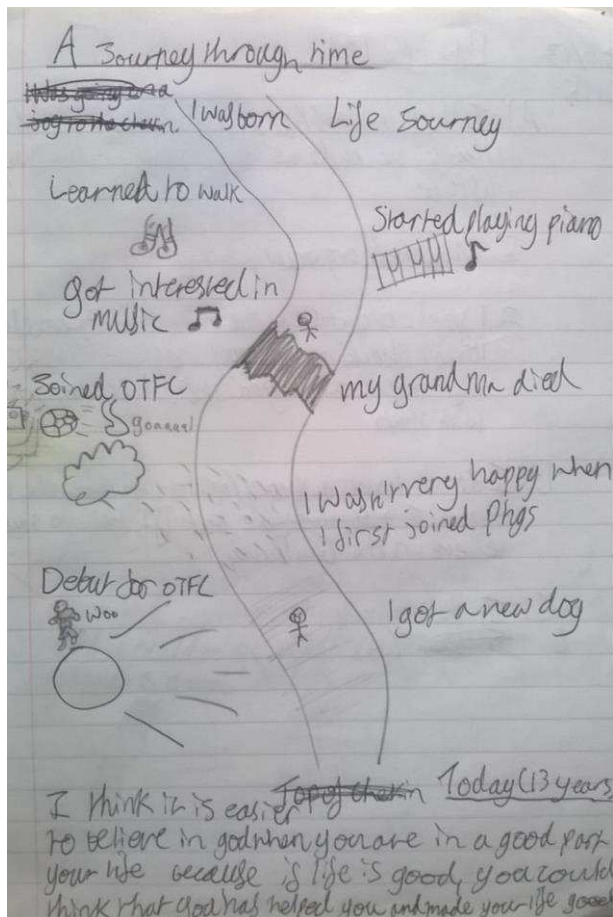 A Journey through time
I was going on a
I was born
Life Journey
Learned to walk
Started playing piano
got interested in
music
my grandma died
Joined OTFC
goaaaal
I wasn't very happy when
I first joined Phgs
Debut for OTFC
woo
I got a new dog
Today (13 years)
I think it is easier
to believe in god when you are in a good part
your life because is life is good, you could
think that God has helped you and made your life good